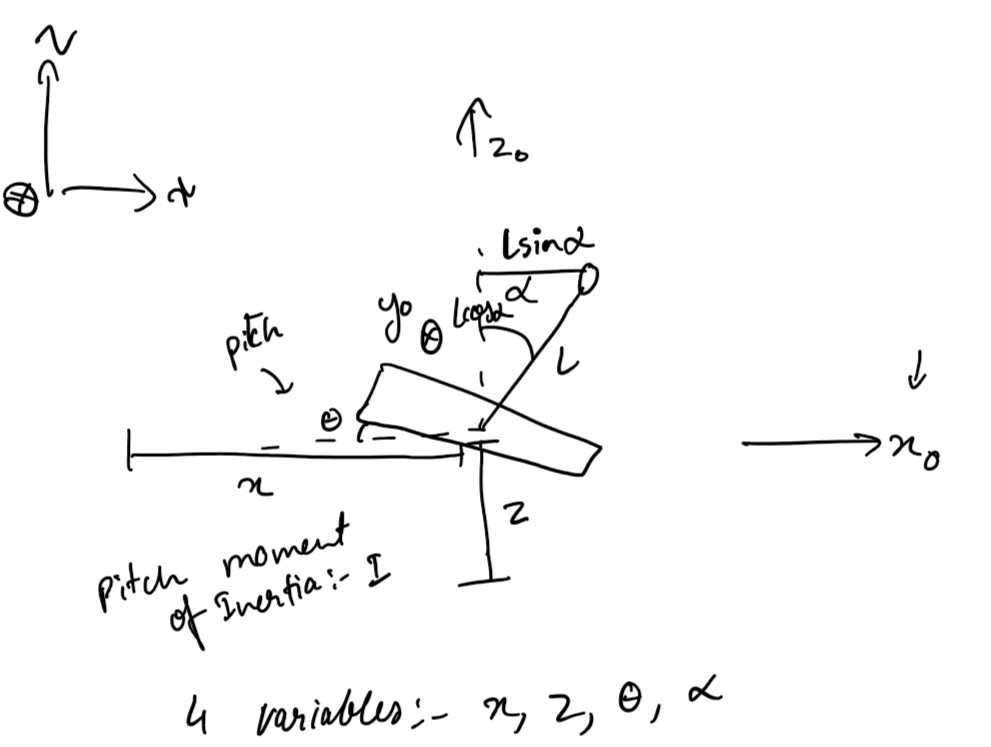 z
x
z₀
L sin α
α
y₀
L cos α
pitch
L
θ
x₀
x
z
pitch moment
of Inertia:- I
4 variables:- x, z, θ, α